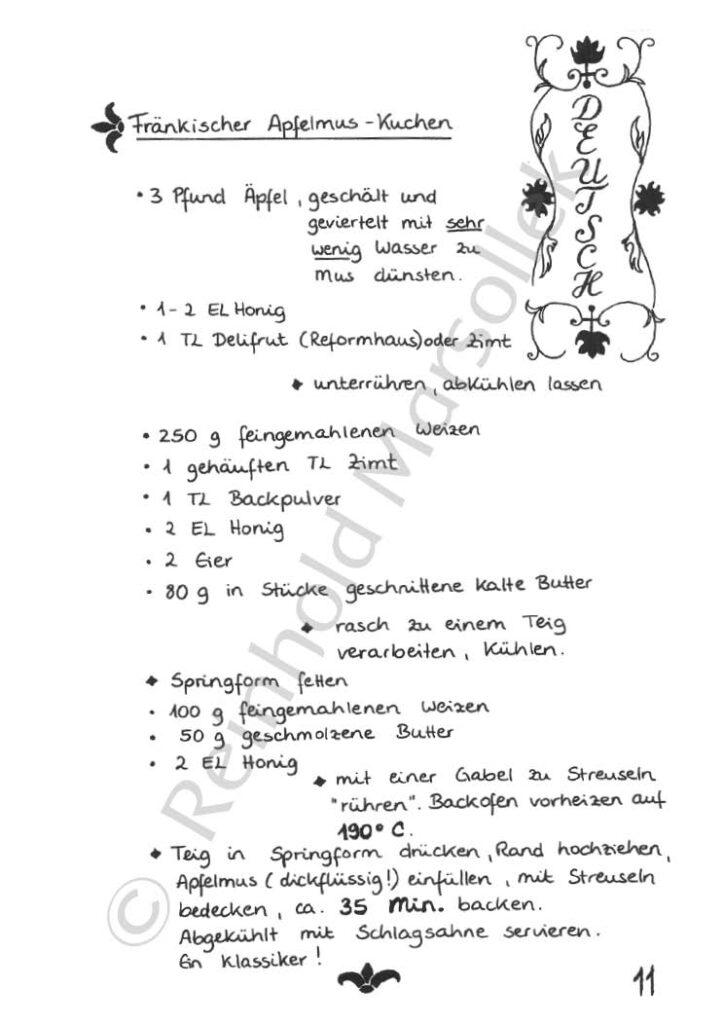 Fränkischer Apfelmus-Kuchen
DEUTSCH
• 3 Pfund Äpfel, geschält und
geviertelt mit sehr
wenig Wasser zu
Mus dünsten.
• 1-2 EL Honig
• 1 TL Delifrut (Reformhaus) oder Zimt
◆ unterrühren, abkühlen lassen
• 250 g feingemahlenen Weizen
• 1 gehäuften TL Zimt
• 1 TL Backpulver
• 2 EL Honig
• 2 Eier
• 80 g in Stücke geschnittene kalte Butter
◆ rasch zu einem Teig
verarbeiten, kühlen.
◆ Springform fetten
• 100 g feingemahlenen Weizen
• 50 g geschmolzene Butter
• 2 EL Honig
◆ mit einer Gabel zu Streuseln
"rühren". Backofen vorheizen auf
190° C.
◆ Teig in Springform drücken, Rand hochziehen,
Apfelmus (dickflüssig!) einfüllen, mit Streuseln
bedecken, ca. 35 Min. backen.
Abgekühlt mit Schlagsahne servieren.
Ein Klassiker!
11
© Reinhold Marsollek